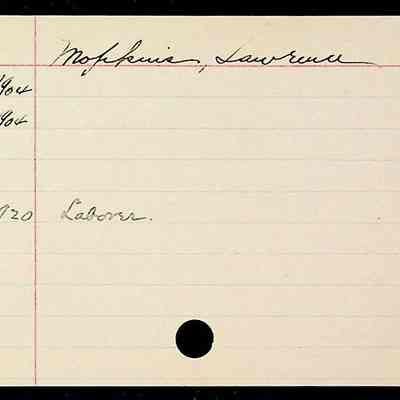 Mopkins, Lawrence
1904
1904
1920 Laborer.